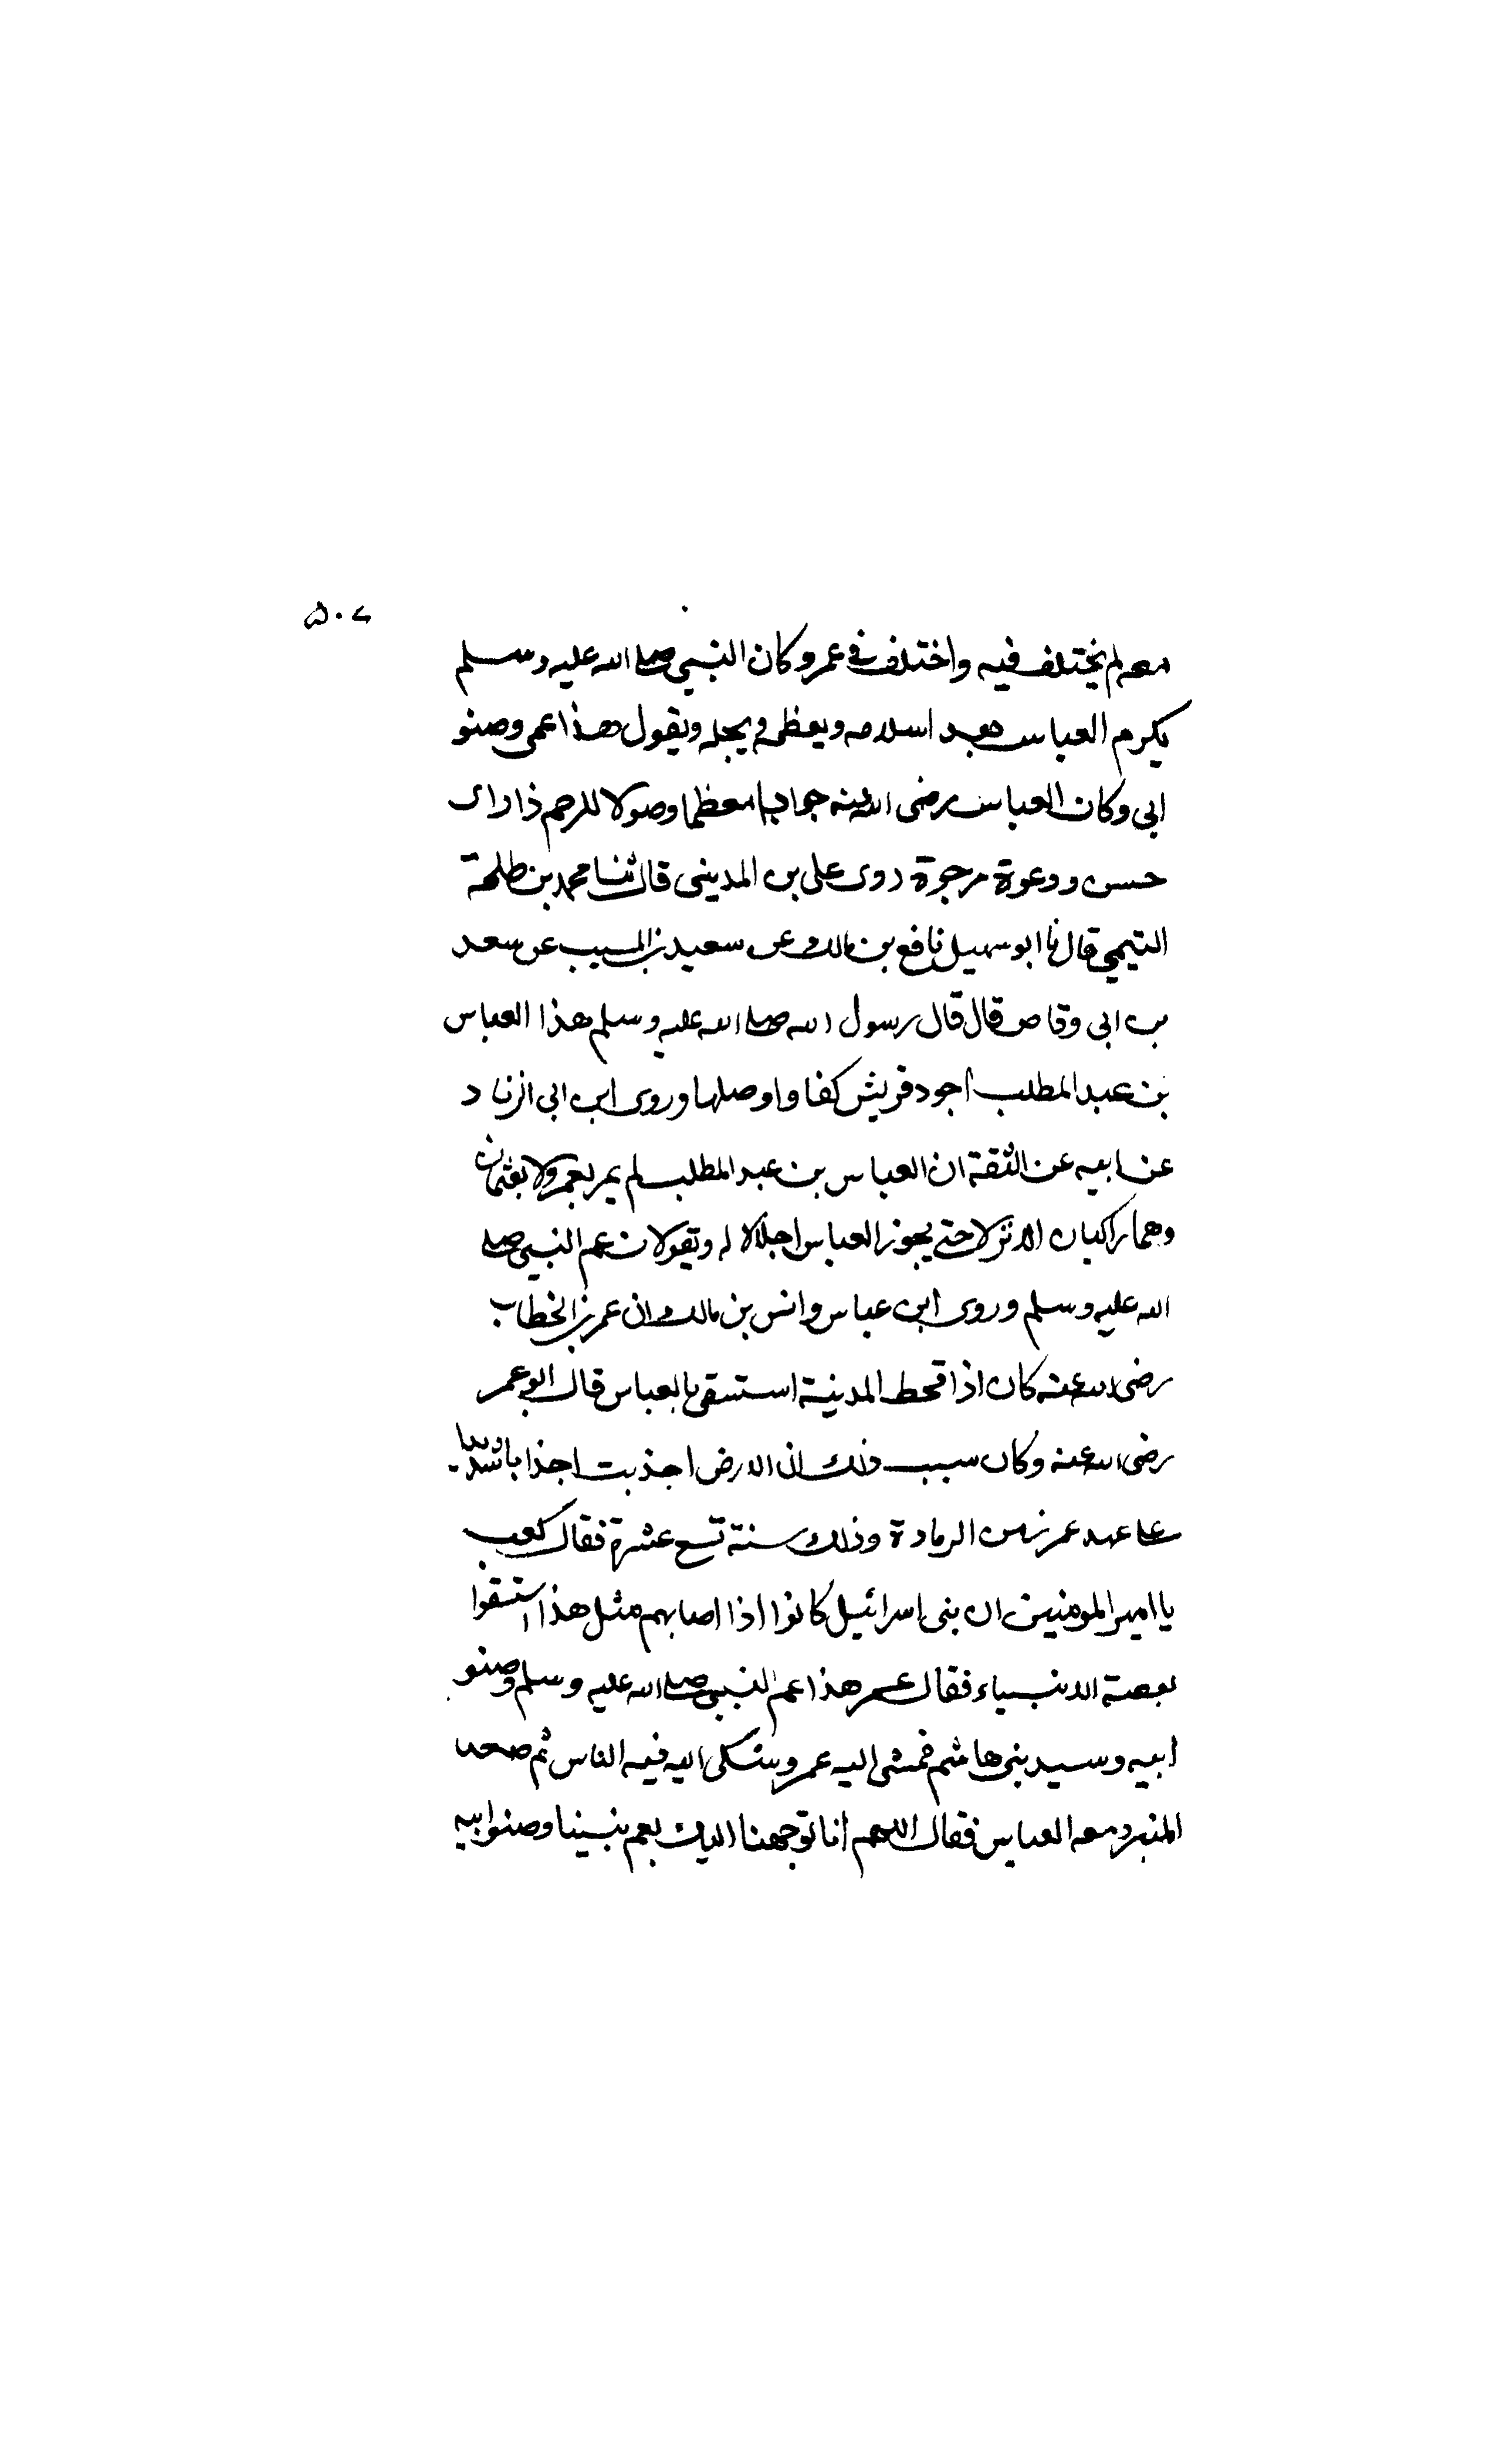 ۵۰۷
معه لم يختلف فيه واختلف في عمر وكان النبي صلى الله عليه وسلم
يكرم العباس بعد اسلامه ويعظمه ويجله ويقول هذا عمى وصنو
ابى وكان العباس رضى الله عنه جوادا معظما وصولا للرحم ذا راى
حسن ودعوة مرجوة روى على بن المدينى قال ثنا محمد بن طلحة
التيمي قال نا ابو سهيل نافع بن مالك عن سعيد بن المسيب عن سعد
بن ابى وقاص قال قال رسول الله صلى الله عليه وسلم هذا العباس
بن عبد المطلب اجود قريش كفا واوصلها وروى ابن ابى الزناد
عن ابيه عن الثقة ان العباس بن عبد المطلب لم يمر بعمر ولا بعثمان
وهما راكبان الا نزلا حتى يجوز العباس اجلالا له ويقولان عم النبي صلى
الله عليه وسلم وروى ابن عباس وانس بن مالك ان عمر بن الخطاب
رضى الله عنه كان اذا قحط المدينة استسقى بالعباس قال ابو عمر
رضى الله عنه وكان سبب ذلك ان الارض اجذبت اجذابا شديدا
على عهد عمر زمن الرمادة وذلك سنة تسع عشرة فقال كعب
يا امير المومنين ان بنى اسرائيل كانوا اذا اصابهم مثل هذا استسقوا
بعصبة الانبياء فقال عمر هذا عم النبي صلى الله عليه وسلم وصنو
ابيه وسيد بنى هاشم فمشى اليه عمر وشكى اليه فيه الناس ثم صعد
المنبر ومعه العباس فقال اللهم انا توجهنا اليك بعم نبينا وصنو ابيه